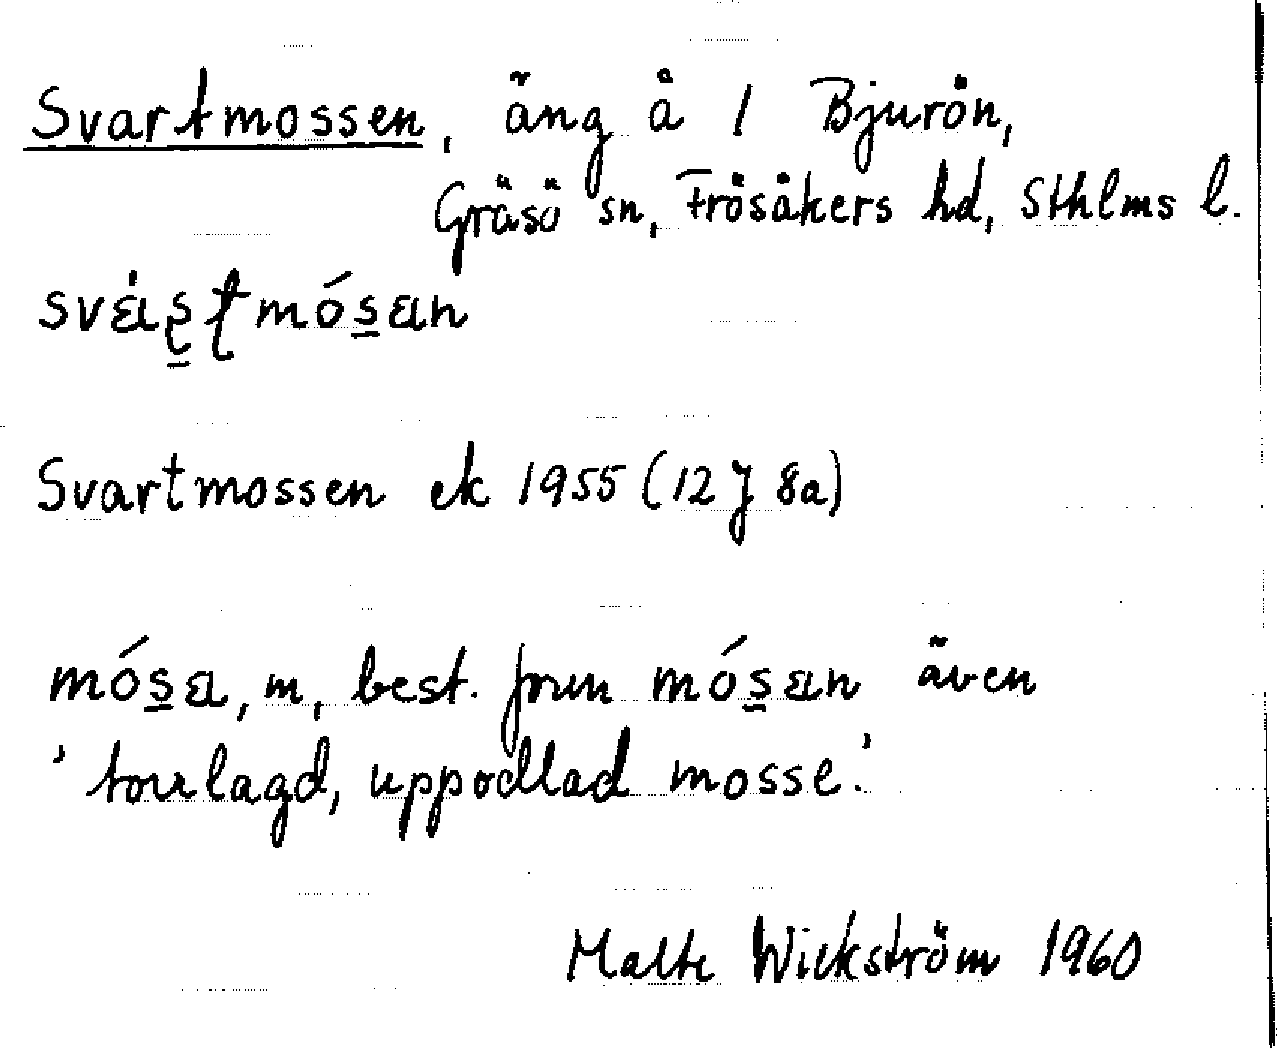 Svartmossen, äng å 1 Bjurön,
Gräsö sn, Frösåkers hd, Sthlms l.
Svartmossen ek 1955 (12 J 8a)
m, best. form även
'torrlagd, uppodlad mosse.'
Malte Wickström 1960